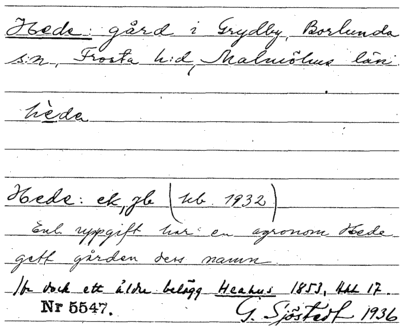 Hede: gård i Grydby, Borlunda
s:n, Frosta h:d, Malmöhus län
hèda
Hede: ek, jb (kb. 1932)
Enl. uppgift har en agronom Hede
gett gården dess namn
Jfr dock ett äldre belägg Heahus 1853, Hbl 17.
Nr 5547. G. Sjöstedt 1936